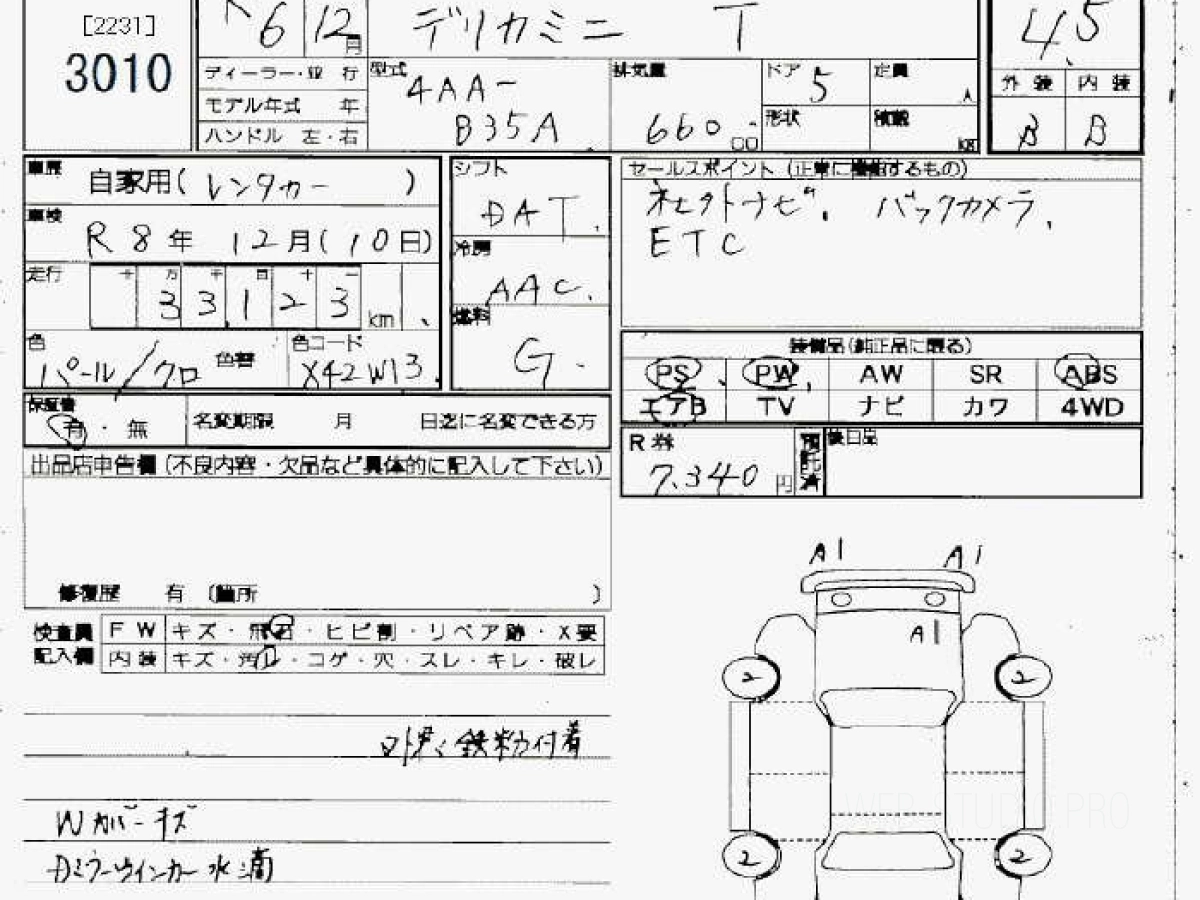 [2231]
3010
6 12月
デリカミニ T
4.5
ディーラー・並行
モデル年式 年
ハンドル 左・右
型式
4AA-
B35A
排気量
660 cc
ドア 5
形状
定員 人
積載 kg
外装 内装
B B
車歴
自家用(レンタカー)
車検
R8年 12月(10日)
走行
十 万 千 百 十 一
33,123 km
色
パール/クロ
色替
色コード
X42W13
シフト
DAT
冷房
AAC
燃料
G
セールスポイント(正常に機能するもの)
ナビ. バックカメラ.
ETC
装備品(純正品に限る)
PS PW AW SR ABS
エアB TV ナビ カワ 4WD
保証書
有・無
名変期限 月 日迄に名変できる方
R券
7,340円
預託済
後日品
出品店申告欄(不良内容・欠品など具体的に記入して下さい)
修復歴 有 (箇所 )
検査員
記入欄
FW キズ・飛石・ヒビ割・リペア跡・X要
内装 キズ・汚れ・コゲ・穴・スレ・キレ・破レ
鉄粉付着
Wカバーキズ
Dミラーウインカー水滴
A1 A1
A1
2 2
2 2
WEB STUDIO PRO